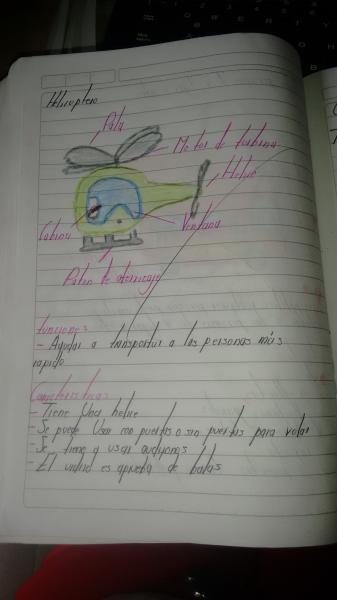 Helicoptero
Pala
Motor de turbina
Helice
Cabina
Ventana
Patin de aterrizaje
Funciones
- Ayudar a transportar a las personas más
rapido
Caracteristicas
- Tiene una helice
- Se puede usar con puertas o sin puertas para volar
- Se tiene q usar audifonos
- El vidrio es aprueba de balas